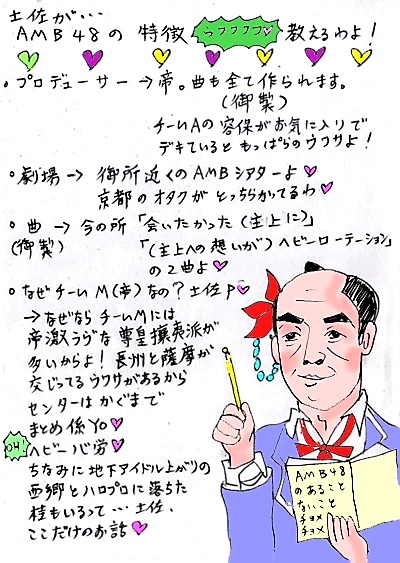 土佐が…
AMB48の 特徴 ウフフフフ♡ 教えるわよ!
・プロデューサー→帝。曲も全て作られます。
(御製)
チームAの容保がお気に入りで
デキているともっぱらのウワサよ!
・劇場→御所近くのAMBシアターよ♡
京都のオタクがとっちらかってるわ♡
・曲→今の所「会いたかった(主上に)」
(御製)
「(主上への想いが)ヘビーローテーション」
の2曲よ♡
・なぜチームM(帝)なの?土佐P♡
→なぜならチームMには
帝激ラヴな尊皇攘夷派が
多いからよ!長州と薩摩が
交じってるウワサがあるから
センターはかぐまで
まとめ係YO♡
OH!
ヘビー心労♡
ちなみに地下アイドル上がりの
西郷とハロプロに落ちた
桂もいるって…土佐、
ここだけのお話♡
AMB48
のあること
ないこと
チョメ
チョメ